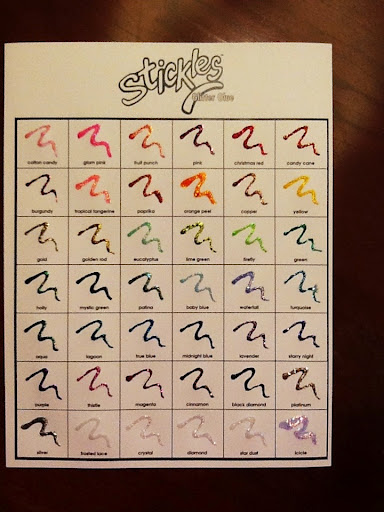 Stickles™
Glitter Glue
cotton candy glam pink fruit punch pink christmas red candy cane
burgundy tropical tangerine paprika orange peel copper yellow
gold golden rod eucalyptus lime green firefly green
holly mystic green patina baby blue waterfall turquoise
aqua lagoon true blue midnight blue lavender starry night
purple thistle magenta cinnamon black diamond platinum
silver frosted lace crystal diamond star dust icicle